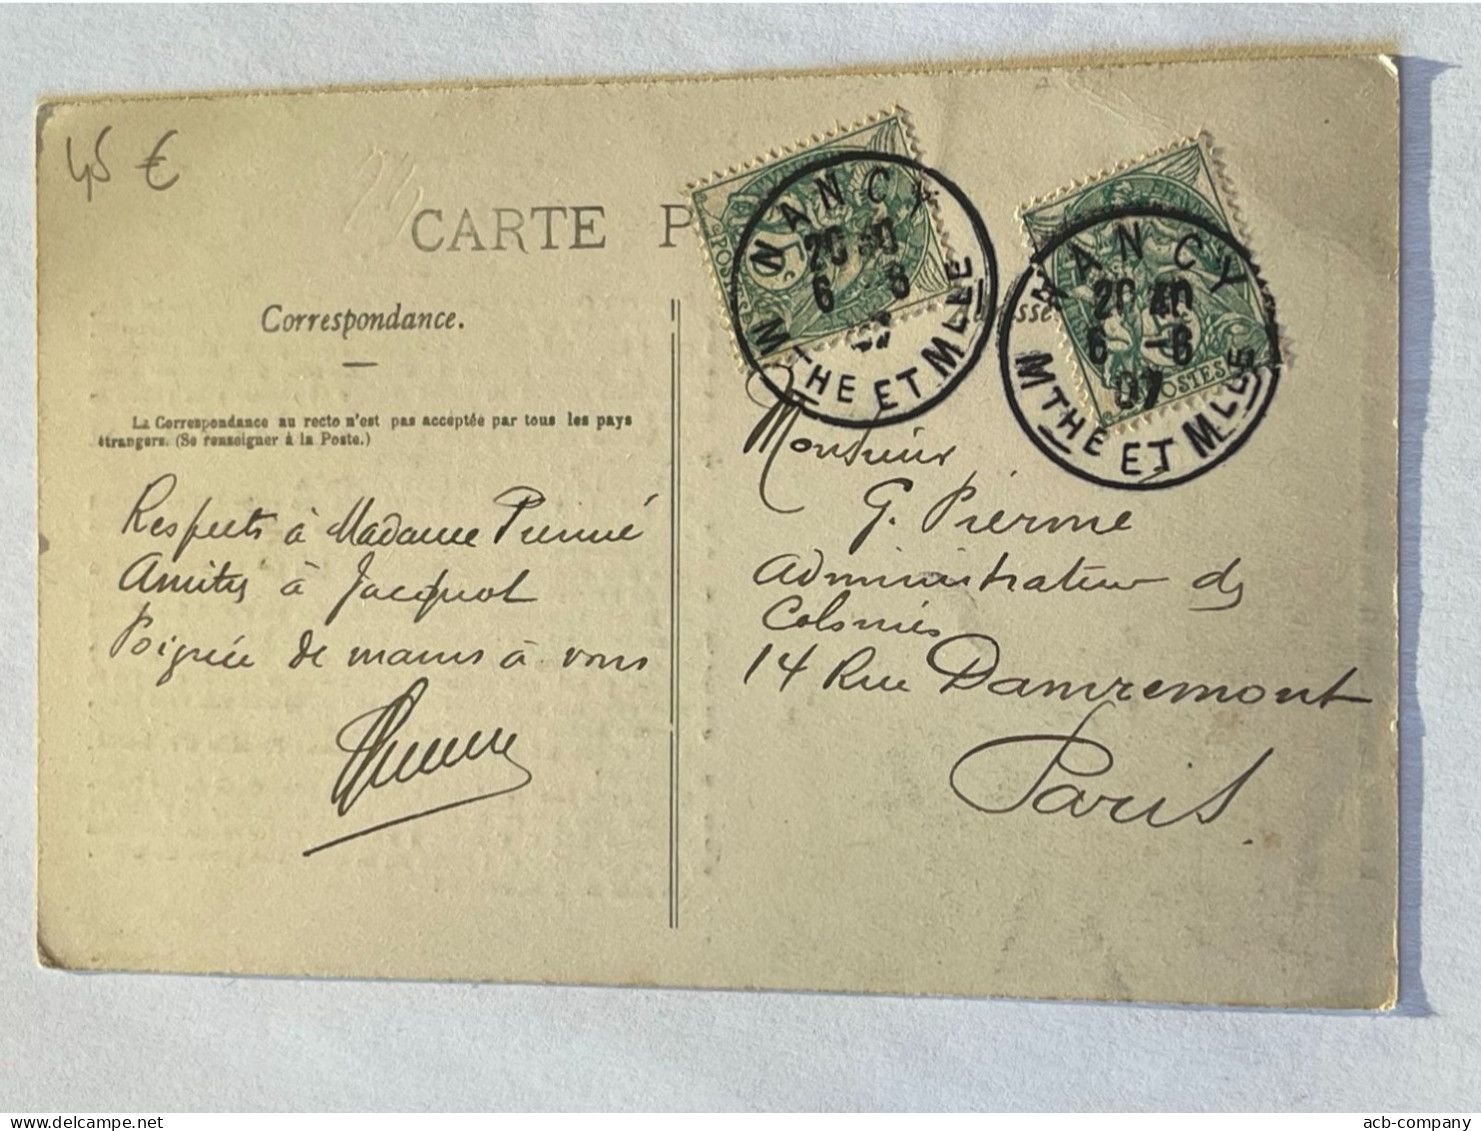 45 €
CARTE P
Correspondance.
La Correspondance au recto n'est pas acceptée par tous les pays
étrangers. (Se renseigner à la Poste.)
Respects à Madame
Amitiés à Jacquot
Poignée de mains à vous
NANCY
20 40
6 - 6
07
MTHE ET MLLE
POSTES
NANCY
20 40
6 - 6
07
MTHE ET MLLE
POSTES
Monsieur
G. Pierme
Administrateur des
Colonies
14 Rue Damremont
Paris.
acb-company